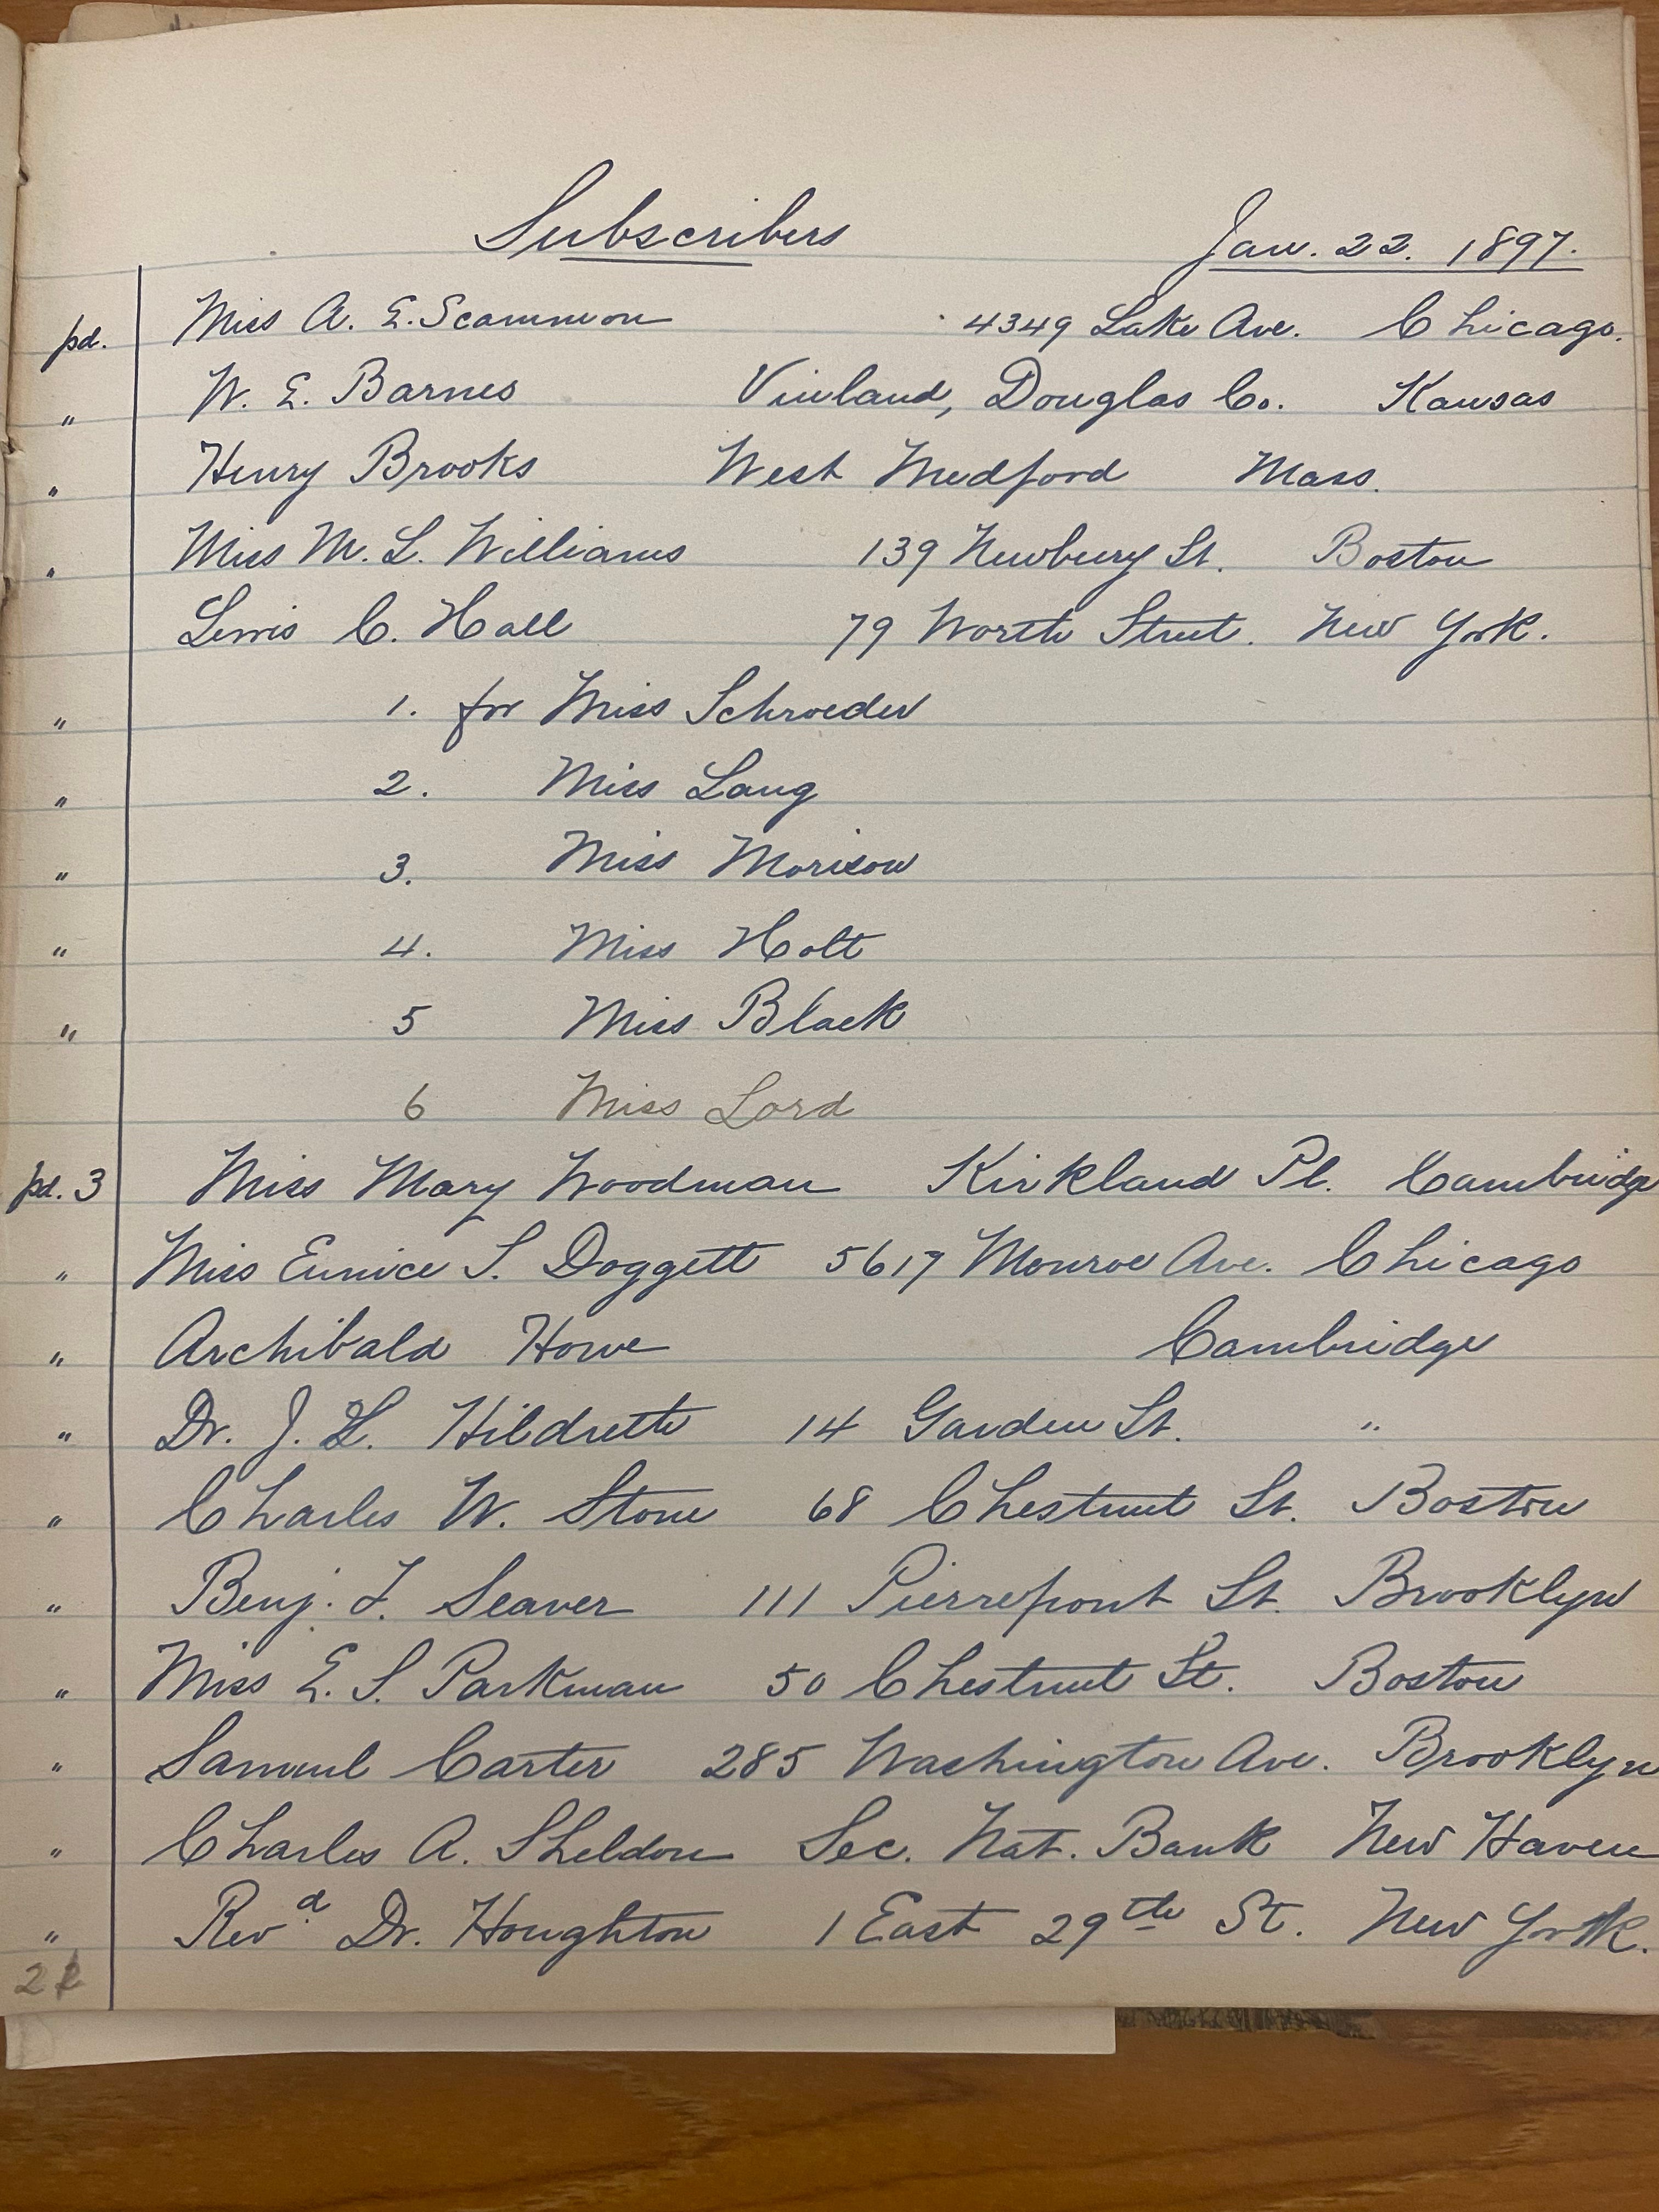 Subscribers Jan. 22. 1897.
pd. Miss A. E. Scammon 4349 Lake Ave. Chicago.
" W. E. Barnes Vinland, Douglas Co. Kansas
" Henry Brooks West Medford Mass.
" Miss M. L. Williams 139 Newbury St. Boston
Lewis C. Hall 79 Worth Street. New York.
" 1. for Miss Schroeder
" 2. Miss Lang
" 3. Miss Morison
" 4. Miss Holt
" 5 Miss Black
6 Miss Lord
pd. 3 Miss Mary Woodman Kirkland Pl. Cambridge
" Miss Eunice S. Doggett 5617 Monroe Ave. Chicago
" Archibald Howe Cambridge
" Dr. J. L. Hildreth 14 Garden St. "
" Charles W. Stone 68 Chestnut St. Boston
" Benj. F. Seaver 111 Pierrepont St. Brooklyn
" Miss E. S. Parkman 50 Chestnut St. Boston
" Samuel Carter 285 Washington Ave. Brooklyn
" Charles A. Sheldon Sec. Nat. Bank New Haven
" Revd Dr. Houghton 1 East 29th St. New York.